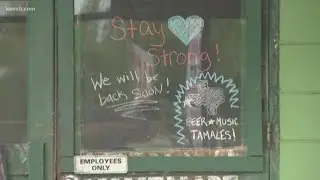 kens5.com
Stay
Strong!
We will be
back SOON!
BEER★MUSIC
TAMALES!
EMPLOYEES
ONLY